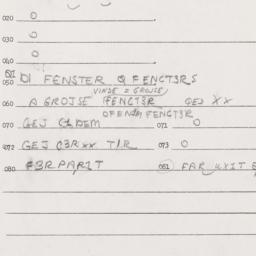 020 0
030 0
040 0
050 DI FENSTER Q FENCT3RS
VINDE = GROUSE
060 A GROJSE FENCT3R GEJ XX
OFENEM FENCT3R
070 GEJ 071 0
072 GEJ C3R xx TIR 073 0
080 081 FAR